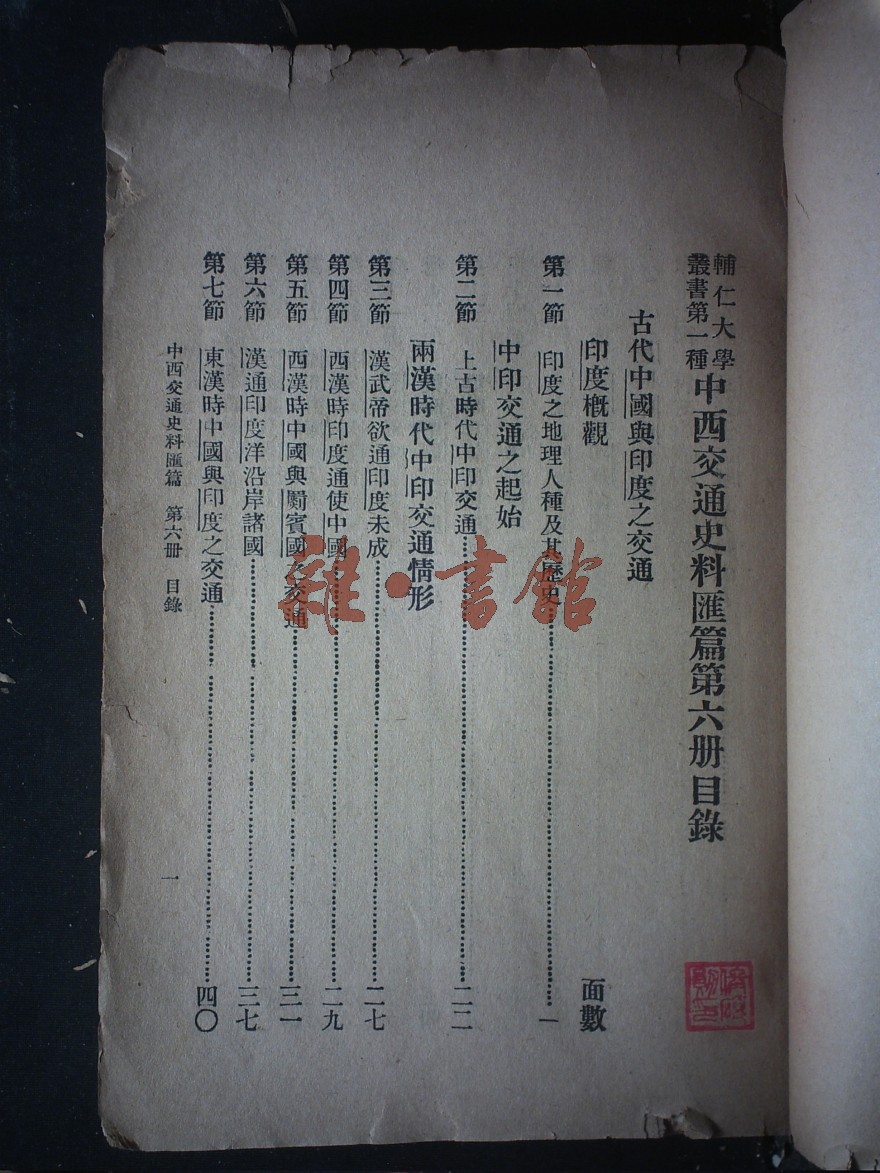 輔仁大學
叢書第一種
中西交通史料匯篇第六册目錄
古代中國與印度之交通
印度概觀 面數
第一節 印度之地理人種及其歷史 一
中印交通之起始
第二節 上古時代中印交通 二二
兩漢時代中印交通情形
第三節 漢武帝欲通印度未成 二七
第四節 西漢時印度通使中國 二九
第五節 西漢時中國與罽賓國之交通 三一
第六節 漢通印度洋沿岸諸國 三七
第七節 東漢時中國與印度之交通 四〇
中西交通史料匯篇 第六册 目錄 一
雜·書館